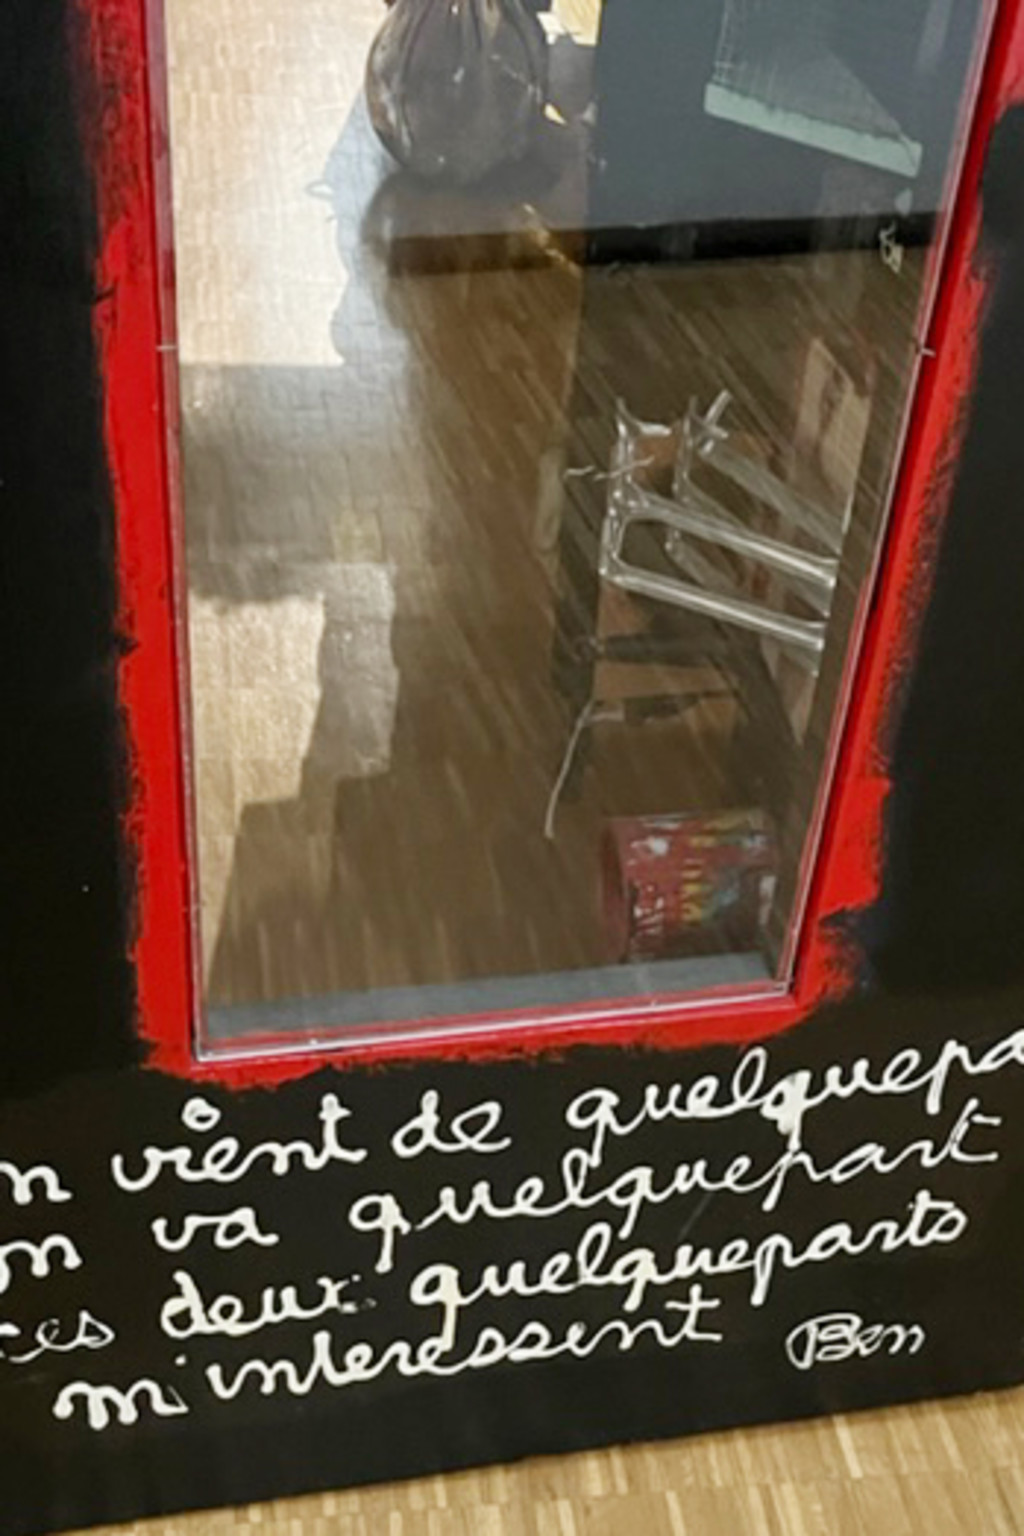 n vient de quelquepa
on va quelquepart
ces deux quelqueparts
m'interessent Ben